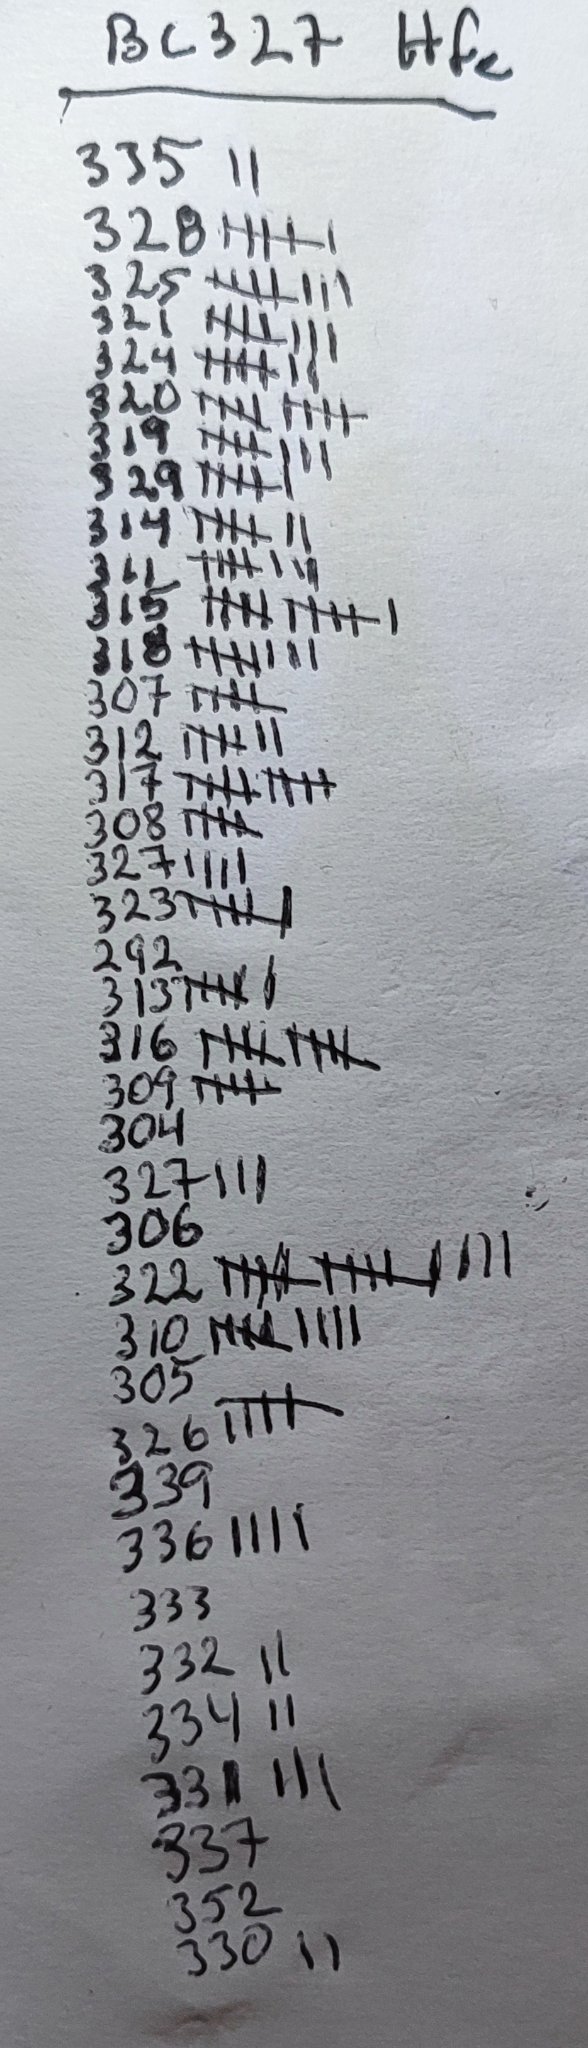 BC327 Hfe
335 ||
328 |||| |
325 |||| |||
321 |||| |||
324 |||| ||
320 |||| ||||
319 |||| |||
329 |||| |
314 |||| ||
311 |||| |||
315 |||| |||| |
318 |||| |||
307 ||||
312 |||| ||
317 |||| ||||
308 ||||
327 ||||
323 |||| |
292
313 |||| |
316 |||| ||||
309 ||||
304
327 |||
306
322 |||| |||| ||||
310 |||| ||||
305
326 ||||
339
336 ||||
333
332 ||
334 ||
331 |||
337
352
330 ||